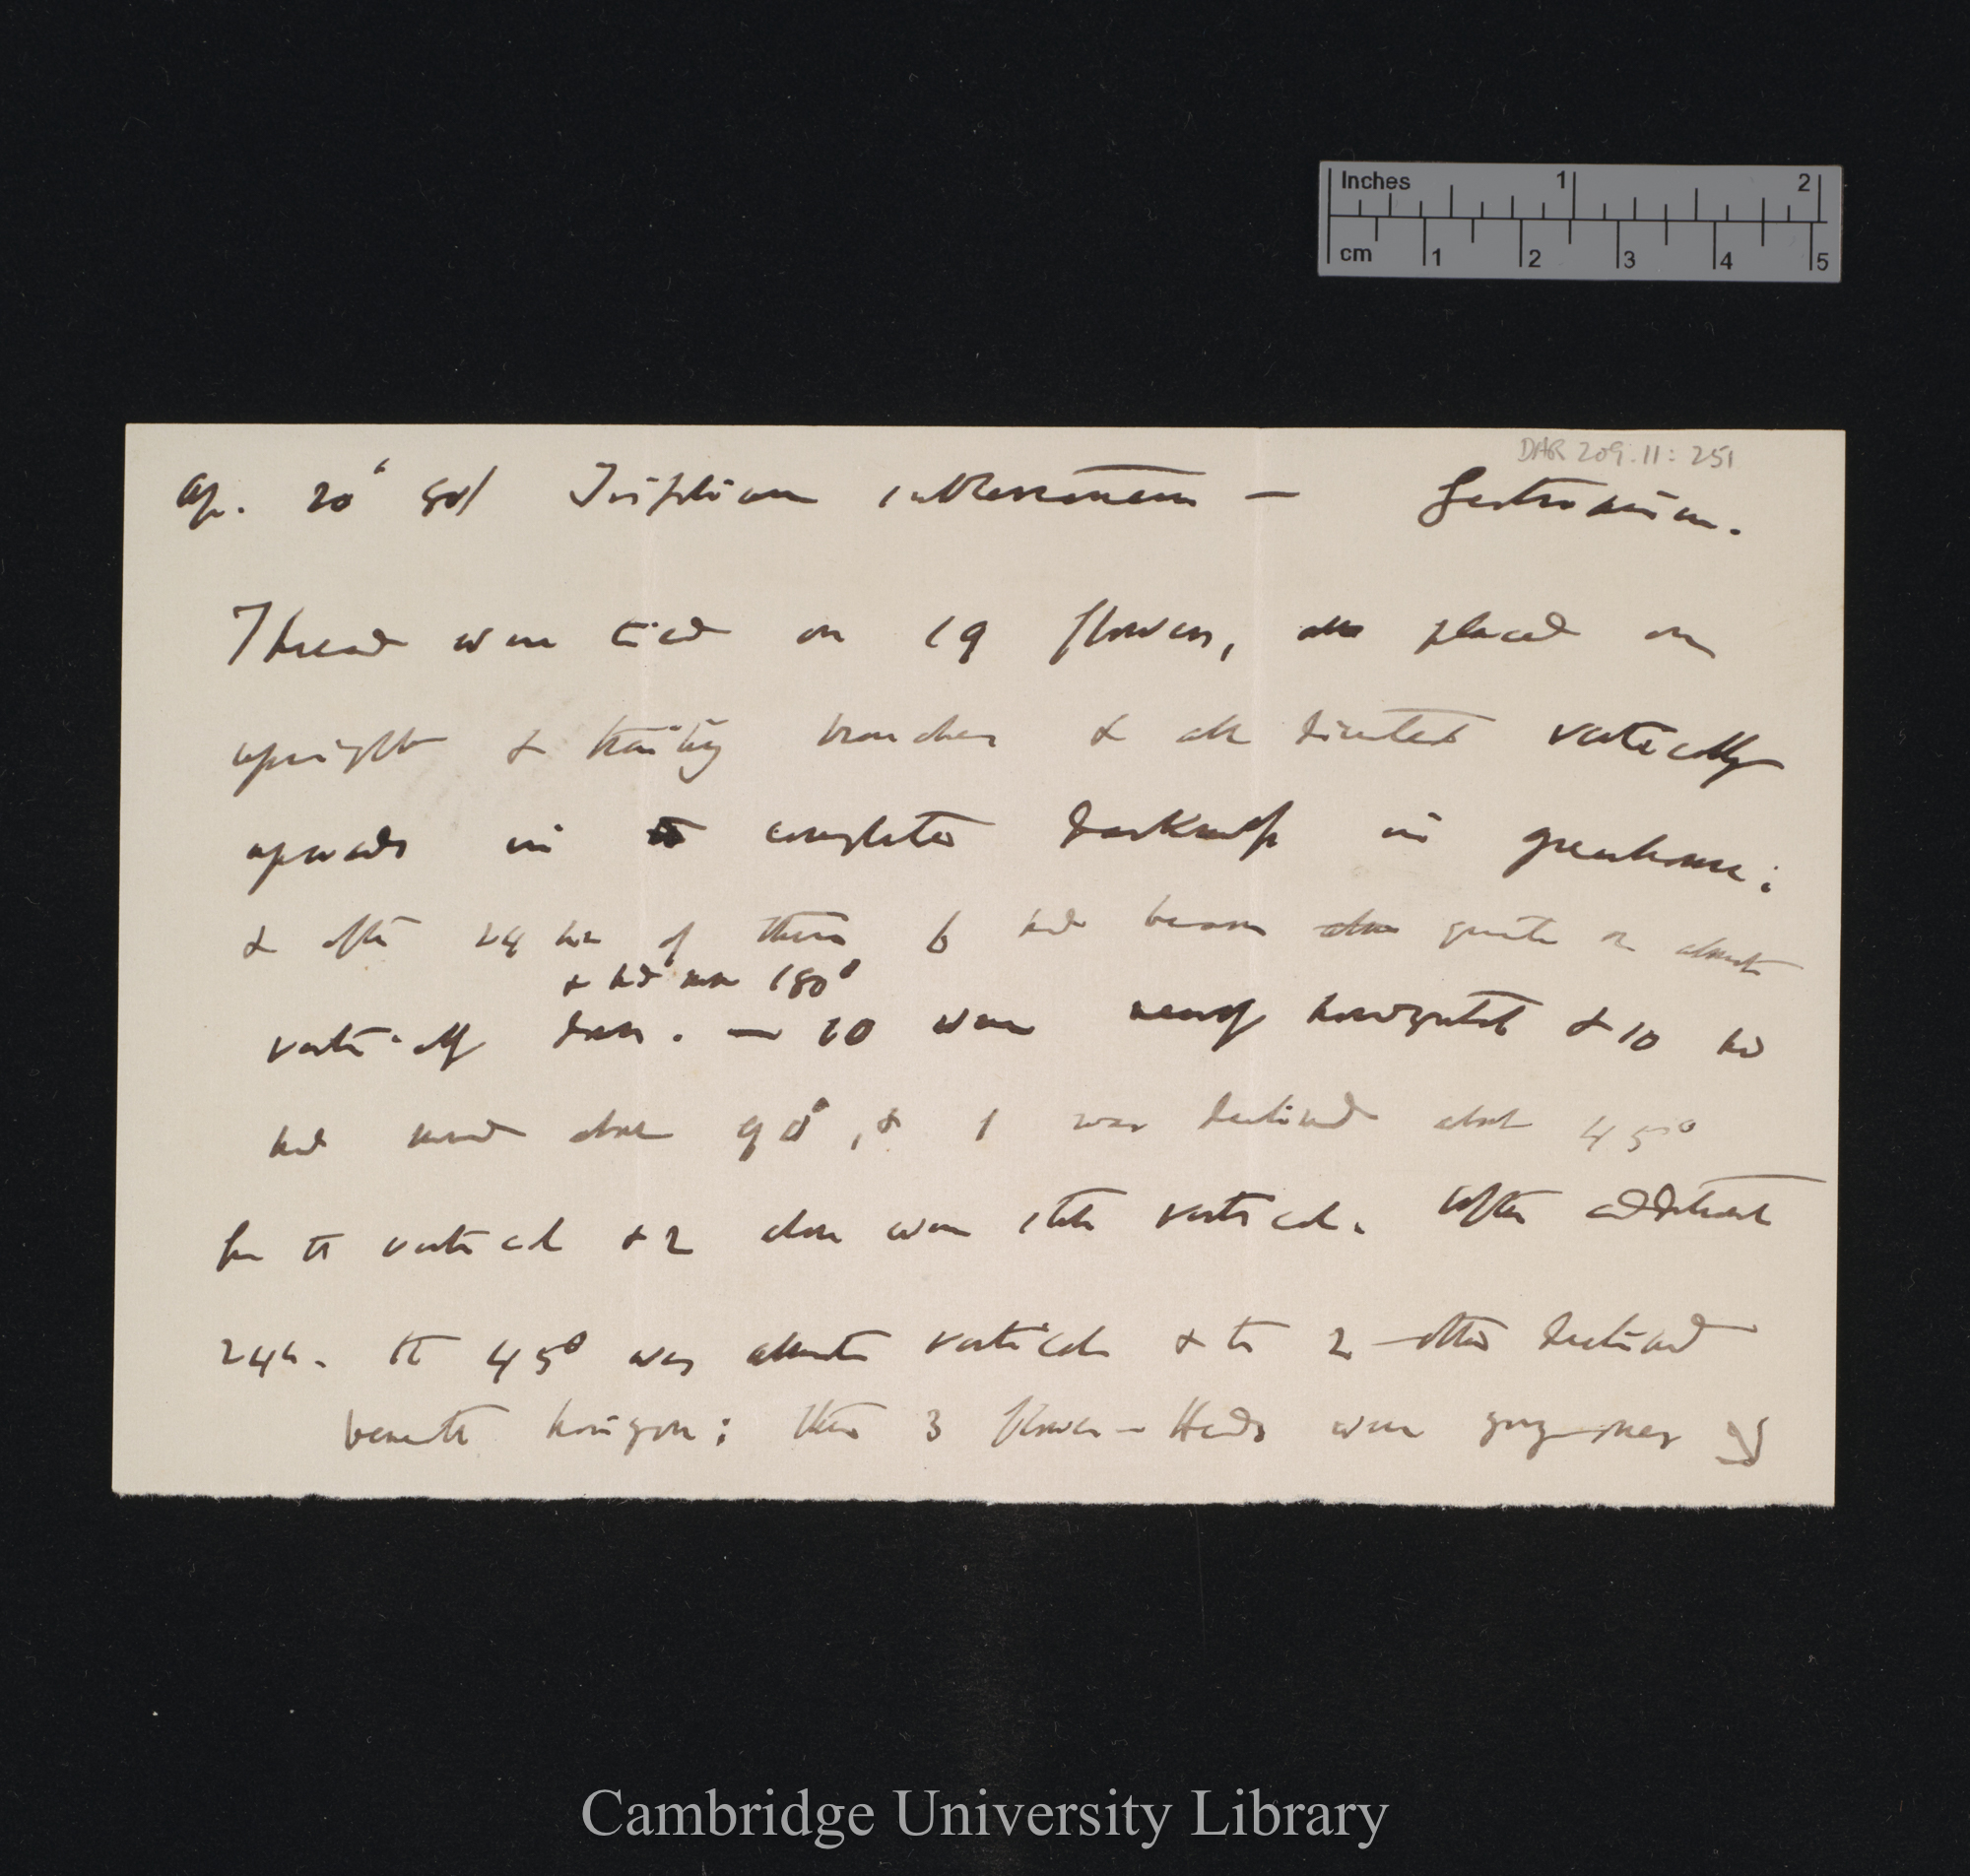 Inches 1 2
cm 1 2 3 4 5
DAR 209.11: 251
Ap. 20' 80/ Trifolium subterraneum —
Thread were tied on 19 flowers, all placed on
upright & trailing branches & all directed vertically
upwards in complete darkness in greenhouse;
& after 24 hrs of these 6 had become quite or almost
& had move 180°
vertically down. — 10 were nearly horizontal & 10 had
had moved about 90°, & 1 was declined about 45°
from the vertical & 2 alone were still vertical. After additional
24h. the 45° was almost vertical & the 2 other declined
beneath horizon; these 3 flower-Heads were
Cambridge University Library